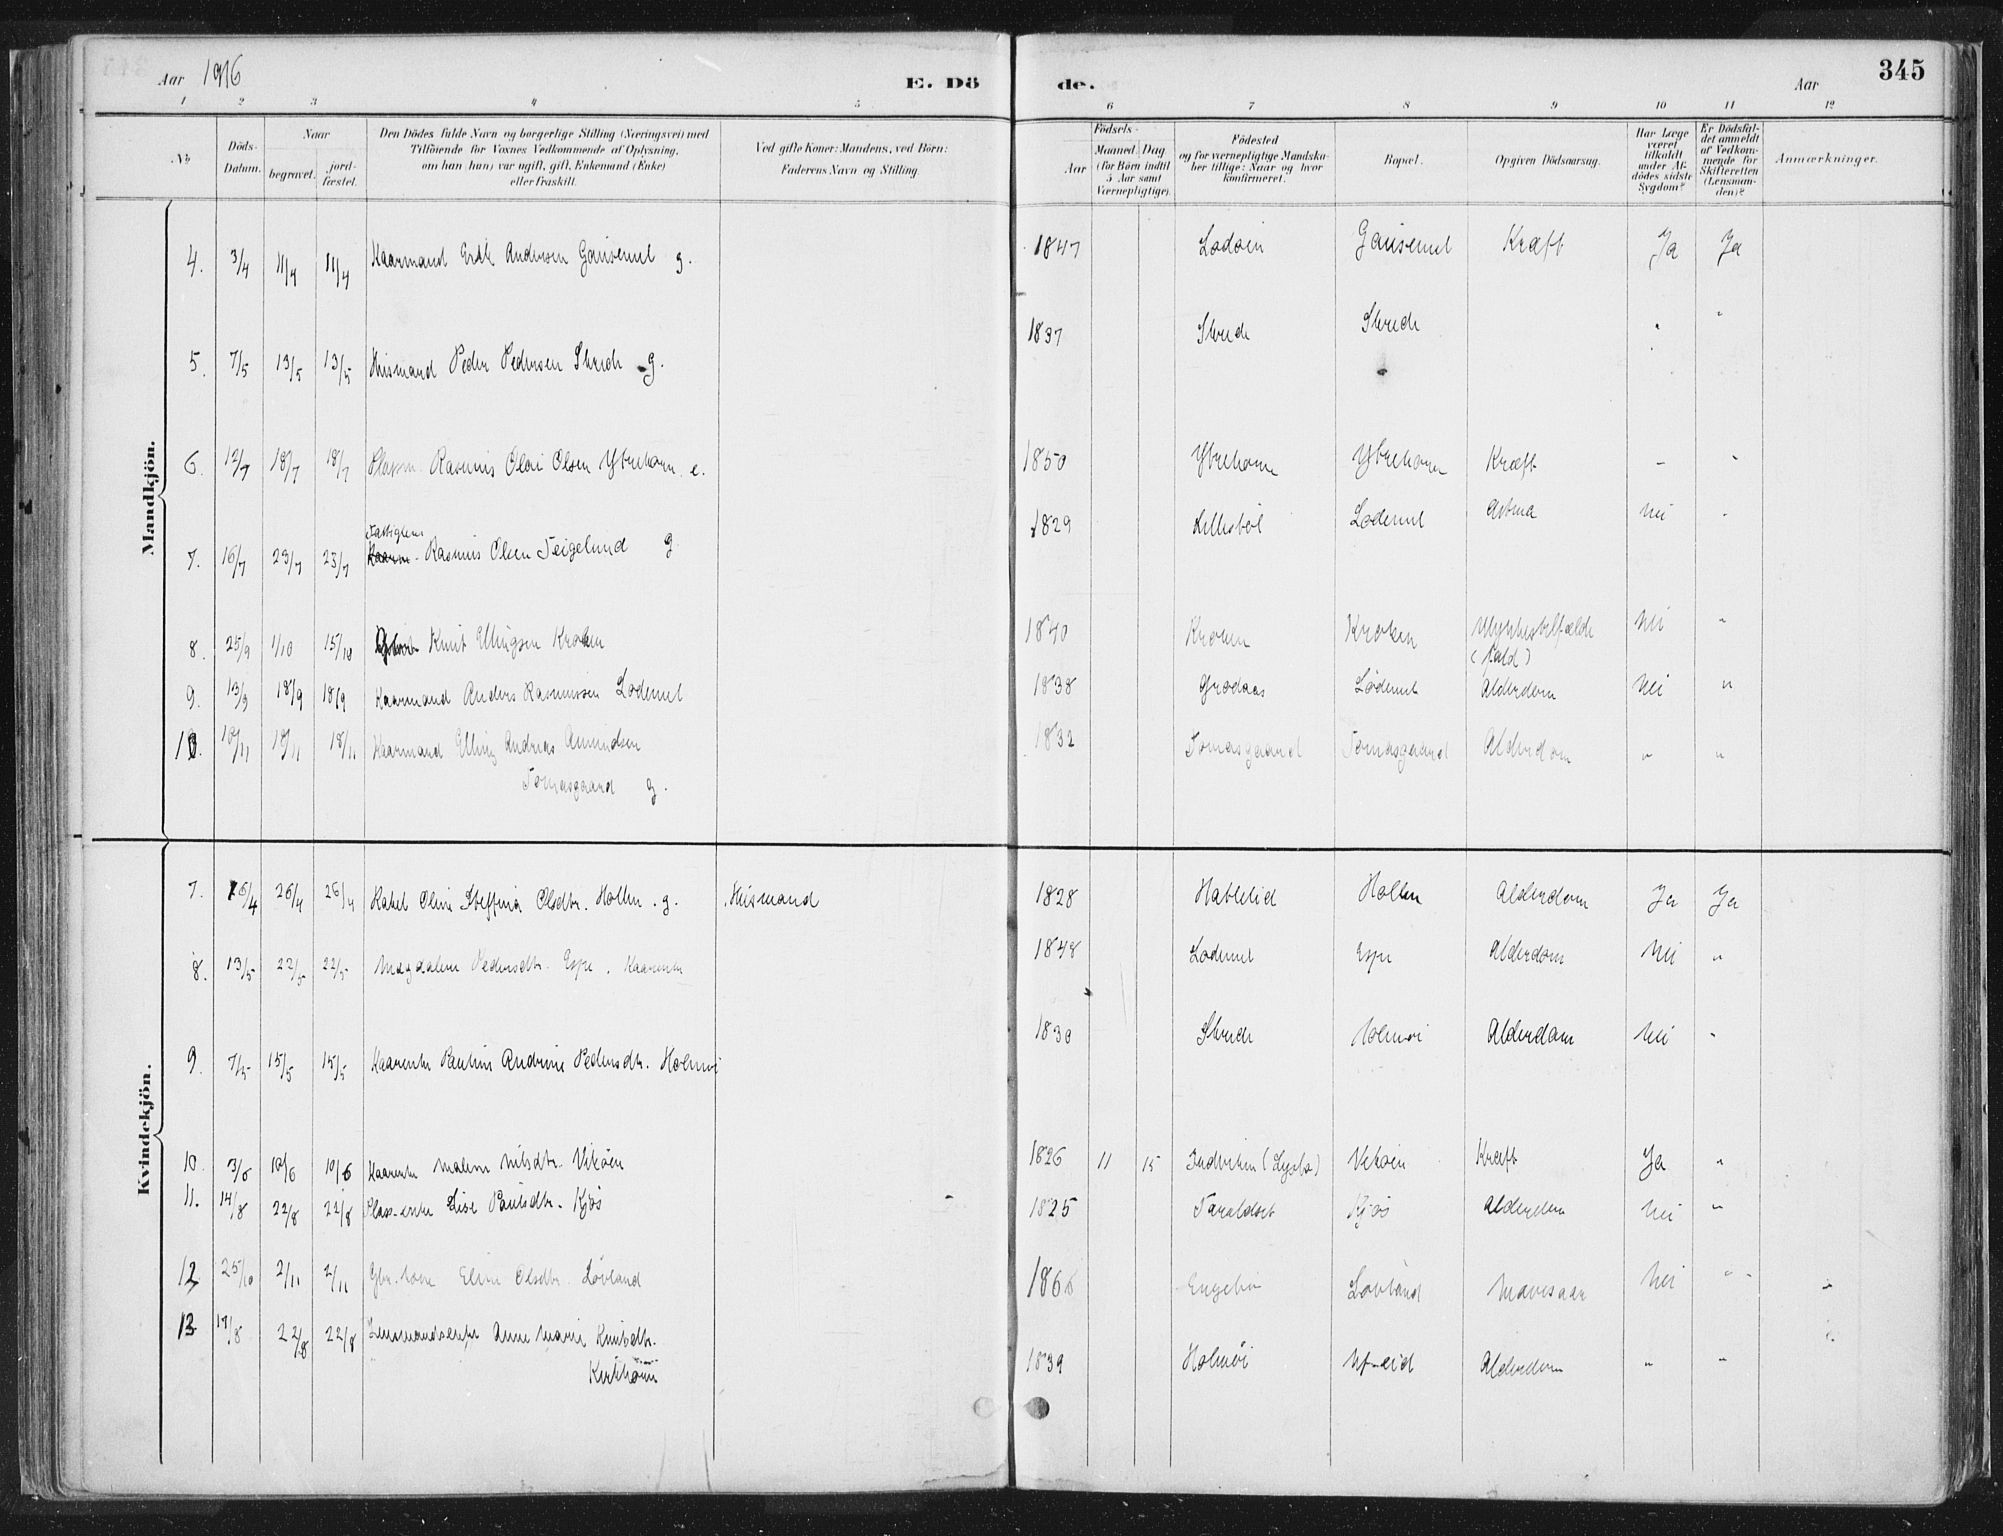 Aar 1916
E. Dö
de.
Aar
345
1 2 3 4 5 6 7 8 9 10 11 12
No
Döds-Datum.
Naar
begravet.
jord-fæstet.
Den Dödes fulde Navn og borgerlige Stilling (Næringsvei) med
Tilföiende for Voxnes Vedkommende af Oplysning,
om han (hun) var ugift, gift, Enkemand (Enke)
eller fraskilt.
Ved gifte Koner: Mandens, ved Börn:
Faderens Navn og Stilling.
Födsels-
Aar
Maaned. Dag
(for Börn indtil
5 Aar samt
Værnepligtige).
Födested
og for værnepligtige Mandska-
ber tillige: Naar og hvor
konfirmeret.
Bopæl.
Opgiven Dödsaarsag.
Har Læge
været
tilkaldt
under Af-
dödes sidste
Sygdom?
Er Dödsfal-
det anmeldt
af Vedkom-
mende for
Skifteretten
(Lensman-
den)?
Anmærkninger.
Mandkjön.
4. 3/4 11/4 11/4 Kaarmand Andersen Gausemel g. 1847 Lodöen Gausemel Kræft Ja Ja
5. 7/5 13/5 13/5 Husmand Peder Pedersen Skrede g. 1837 Skrede Skrede " "
6. 12/7 18/7 18/7 Plassm. Rasmus Olai Olsen Ytrehorn e. 1850 Ytrehorn Ytrehorn Kræft - "
Fattiglem
7. 16/7 23/7 23/7 Kaarm. Rasmus Olsen Teigelund g 1829 Lillebøl Lødemel Astma Nei "
8. 25/9 1/10 15/10 Knut Ellingsen Kroken 1840 Kroken Kroken Ulykkestilfælde Nei "
(fald)
9. 13/9 18/9 18/9 Kaarmand Anders Rasmussen Lødemel 1838 Grodaas Lødemel Alderdom Nei "
10. 10/11 18/11 18/11 Kaarmand Elling Andreas Amundsen 1832 Tomasgaard Tomasgaard Alderdom " "
Tomasgaard g.
Kvindekjön.
7. 16/4 26/4 26/4 Rakel Oline Steffina Olsdtr. Hollen. g. Husmand 1828 Hatlelid Hollen Alderdom Ja Ja
8. 13/5 22/5 22/5 Magdalene Pedersdtr. Espe. Kaarenke 1848 Lødemel Espe Alderdom Nei "
9. 7/5 15/5 15/5 Kaarenke Pauline Andrine Pedersdtr. Holmøi 1830 Skrede Holmøi Alderdom Nei "
10. 3/6 10/6 10/6 Kaarenke Malene Nilsdtr. Vikøen 1826 11 15 Indviken Vikøen Kræft Ja "
11. 14/8 22/8 22/8 Plass-enke Lise Paulsdtr. Kjøs 1825 Taraldset Kjøs Alderdom Nei "
12 25/10 2/11 2/11 Gbr. kone Eline Olsdtr. Løvland 1866 Engebø Løvland Mavesaar Nei "
13 17/8 22/8 22/8 Lensmandsenke Anne Marie Knutsdtr. 1839 Holmøi Alderdom " "
Kirkhorn